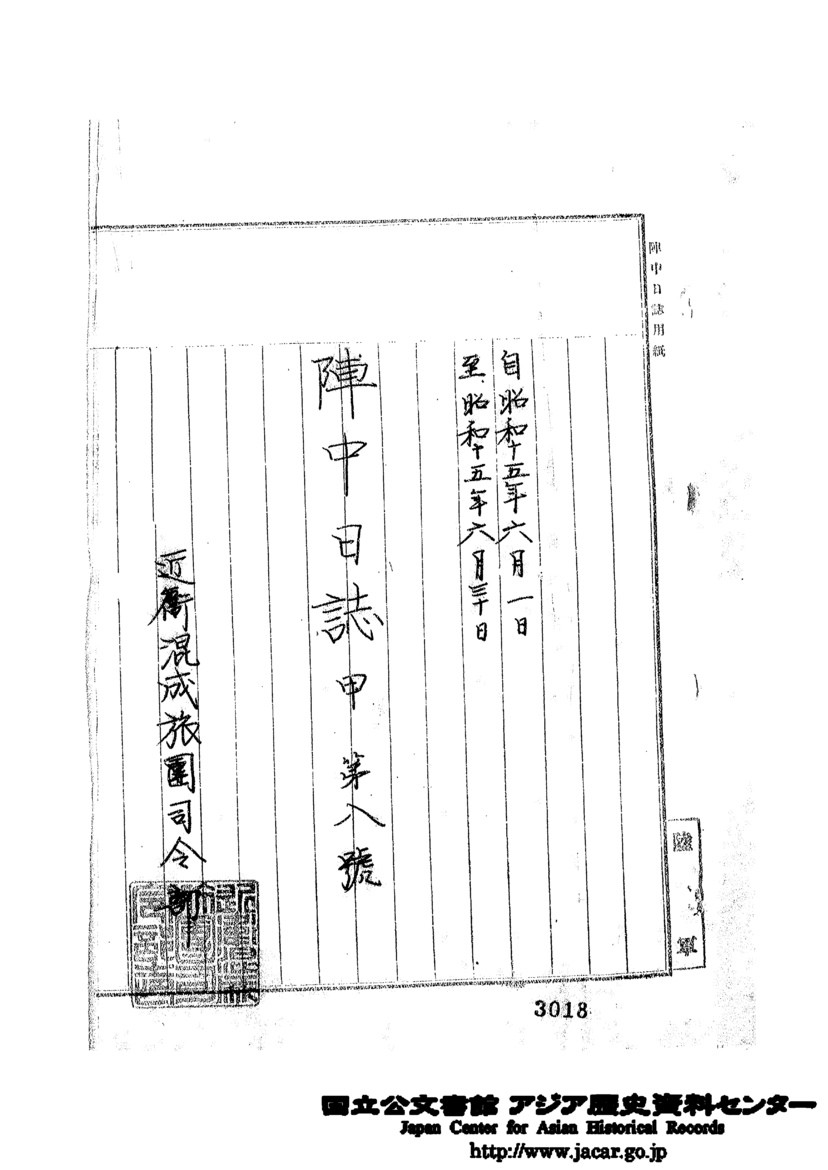 陣中日誌用紙
自昭和十五年六月一日
至昭和十五年六月三十日
陣中日誌甲第八號
近衞混成旅團司令部
陸軍
3018
国立公文書館 アジア歴史資料センター
Japan Center for Asian Historical Records
http://www.jacar.go.jp